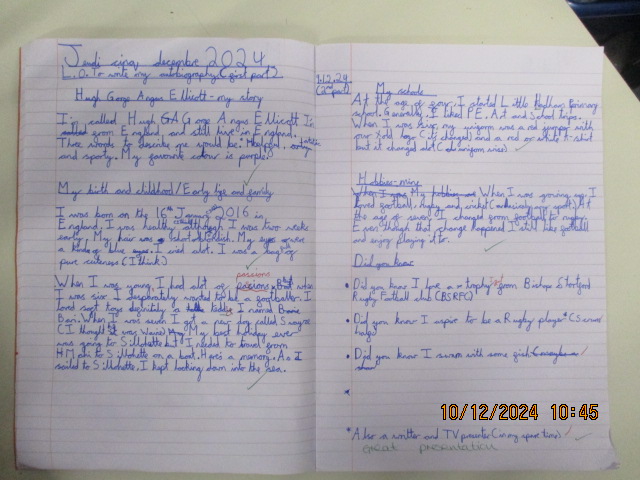 Jeudi cinq decembre 2024
L.O. To write my autobiography (first part)
Hugh George Angus Ellicott - my story
I'm called Hugh George Angus Ellicott. I'm
from England, and still live in England.
Three words to describe me would be: Helpful,
and sporty. My favourite colour is purple.
My birth and childhood/Early life and family
I was born on the 16th January 2016 in
England. I was healthy although I was two weeks
early. My hair was short blondish. My eyes were
a kind of blue. I cried alot. I was a
pure cuteness (I think)
passions
When I was young, I had alot of When
I was six I desperately wanted to be a footballer. I
loved soft toys definitely a teddy I named
Ban. When I was seven I got a new dog called
(I thought it was Waird). My best holiday ever
was going to but I needed to travel from
to on a boat. Here's a memory. As I
sailed to I kept looking down into the sea.
5.12.24
(2nd part)
My school
At the age of four, I started Little Hadham Primary
school. Generally, I liked P.E, Art and School trips.
When I was four my uniform was a red jumper with
our old logo (it changed) and a red or white t-shirt
but it changed alot (
Hobbies - mine
When I was growing up, I
loved football, rugby and cricket (
age of seven I changed from football to rugby.
Even though that change happened I still like football
and enjoy playing it to.
Did you know
Did you know I love a trophy from Bishop's Stortford
Rugby Football club (BSRFC)
Did you know I aspire to be a Rugby player
Did you know I swam with some fish
Also a writter and TV presenter (in my spare time)
great presentation
10/12/2024 10:45